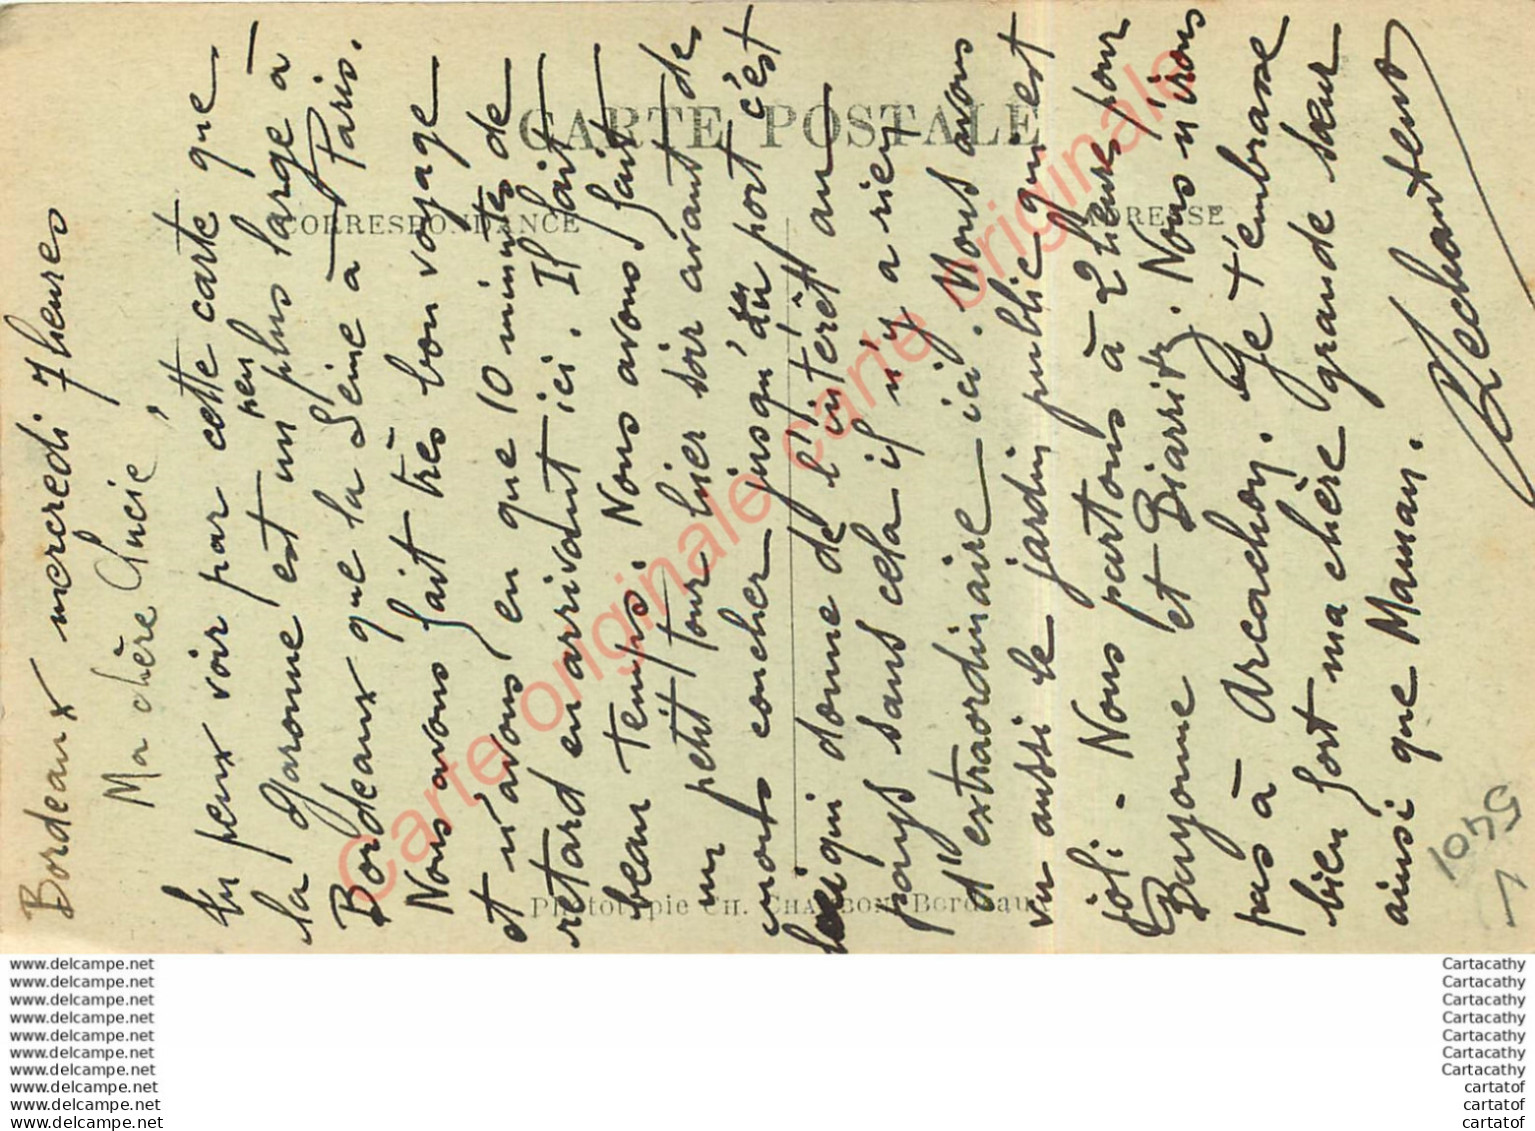 Bordeaux mercredi 7 heures
Ma chère Lucie,
tu peux voir par cette carte que
la Garonne est un peu plus large à
Bordeaux que la Seine à Paris.
Nous avons fait très bon voyage
et n'avons eu que 10 minutes de
retard en arrivant ici. Il fait
beau temps. Nous avons fait
un petit tour hier soir avant de
nous coucher jusqu'au port c'est
qui donne de l'intérêt au
pays sans cela il n'y a rien
d'extraordinaire ici. Nous avons
vu aussi le jardin public qui est
joli - Nous partons à 2 heures pour
Bayonne et Biarritz. Nous n'irons
pas à Arcachon. Je t'embrasse
bien fort ma chère grande sœur
ainsi que Maman.
CARTE POSTALE
CORRESPONDANCE
ADRESSE
Phototypie CH. CHAMBON Bordeaux
5401
Carte originale carte originale
www.delcampe.net
www.delcampe.net
www.delcampe.net
www.delcampe.net
www.delcampe.net
www.delcampe.net
www.delcampe.net
www.delcampe.net
www.delcampe.net
www.delcampe.net
Cartacathy
Cartacathy
Cartacathy
Cartacathy
Cartacathy
Cartacathy
Cartacathy
cartatof
cartatof
cartatof